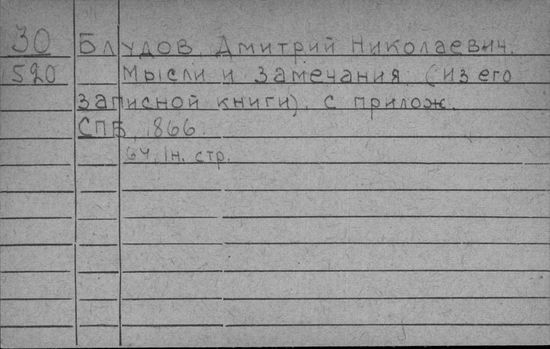 30 Блудов, Дмитрий Николаевич.
520 Мысли и замечания. (из его
записной книги), с прилож.
СПБ, 1866.
64, 1н. стр.